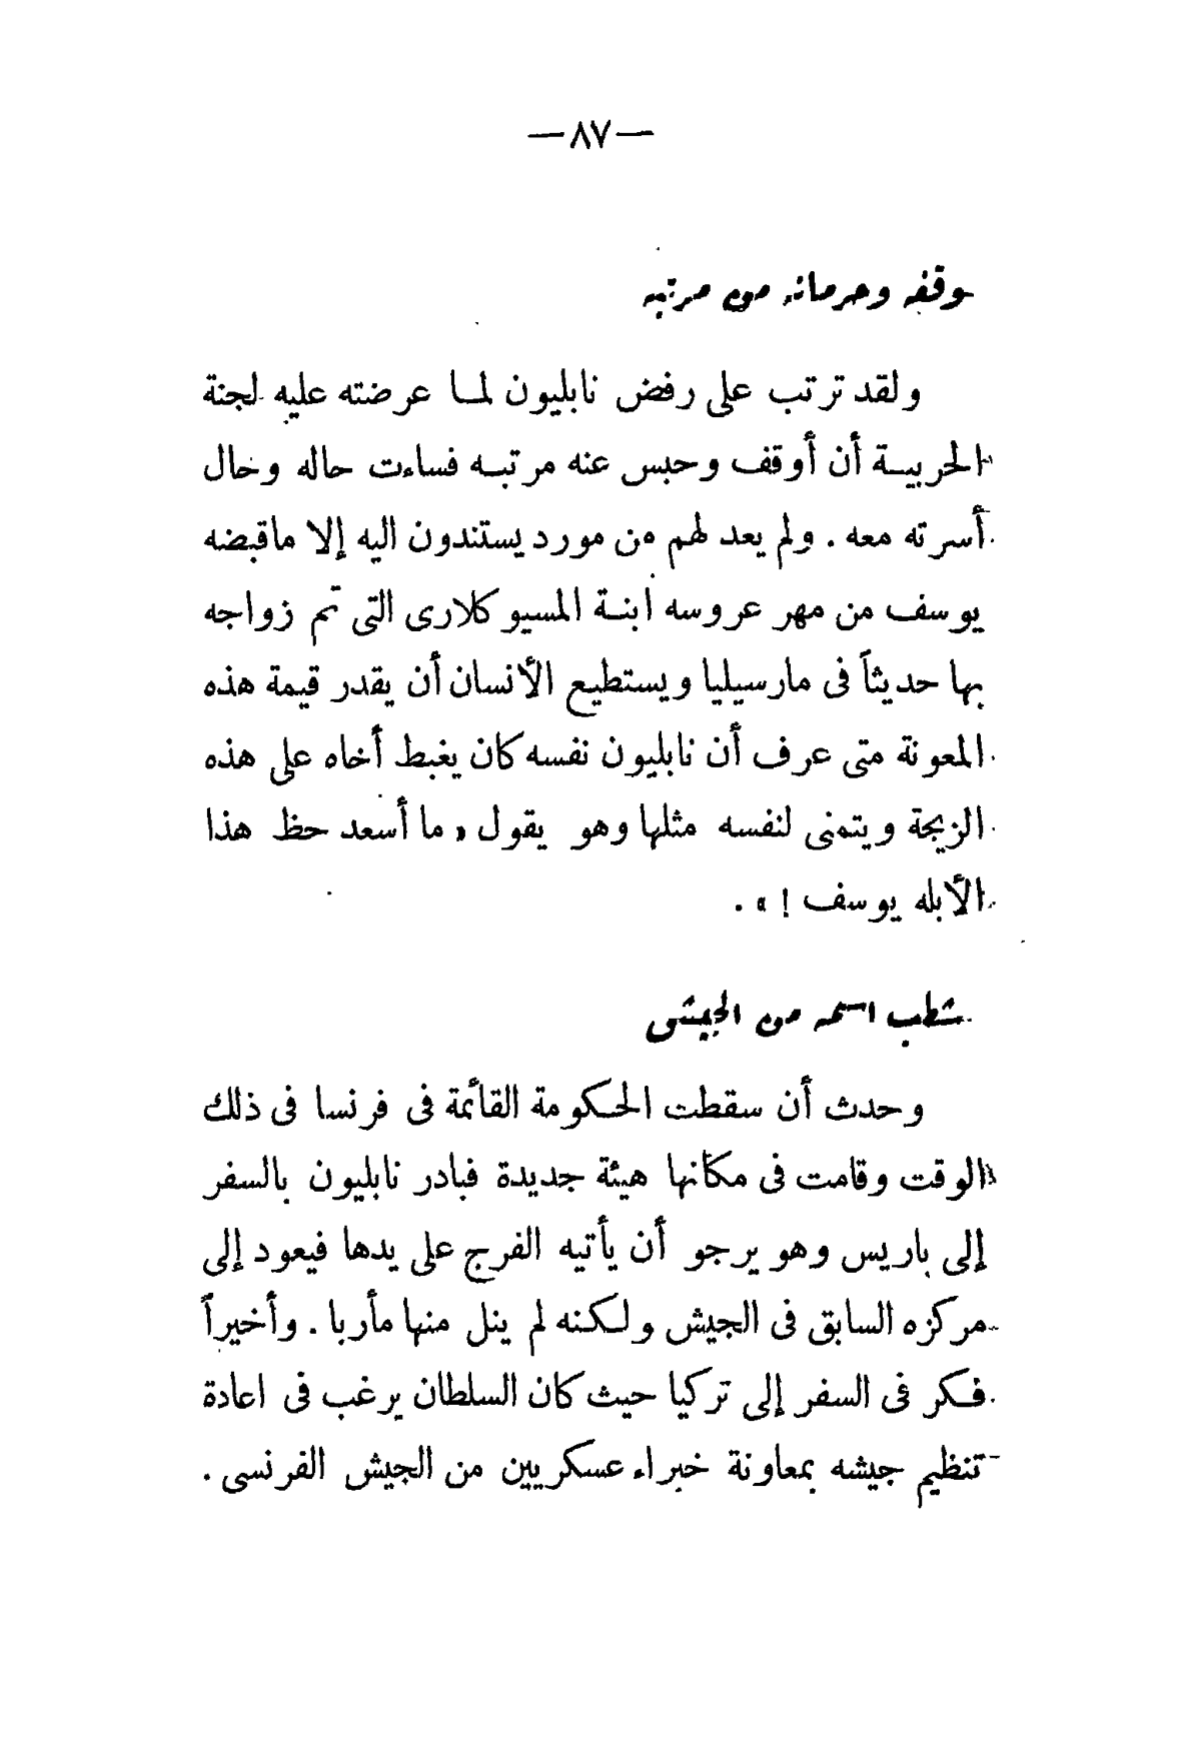 —٨٧—
وقفه وحرمانه من مرتبه
ولقد ترتب على رفض نابليون لما عرضته عليه لجنة
الحربية أن أوقف وحبس عنه مرتبه فساءت حاله وحال
أسرته معه . ولم يعد لهم من مورد يستندون اليه إلا ماقبضه
يوسف من مهر عروسه ابنة المسيو كلارى التى تم زواجه
بها حديثاً فى مارسيليا ويستطيع الأنسان أن يقدر قيمة هذه
المعونة متى عرف أن نابليون نفسه كان يغبط أخاه على هذه
الزيجة ويتمنى لنفسه مثلها وهو يقول « ما أسعد حظ هذا
الأبله يوسف ! » .
شطب اسمه من الجيش
وحدث أن سقطت الحكومة القائمة فى فرنسا فى ذلك
الوقت وقامت فى مكانها هيئة جديدة فبادر نابليون بالسفر
إلى باريس وهو يرجو أن يأتيه الفرج على يدها فيعود إلى
مركزه السابق فى الجيش ولكنه لم ينل منها مأربا . وأخيراً
فكر فى السفر إلى تركيا حيث كان السلطان يرغب فى اعادة
تنظيم جيشه بمعاونة خبراء عسكريين من الجيش الفرنسى .